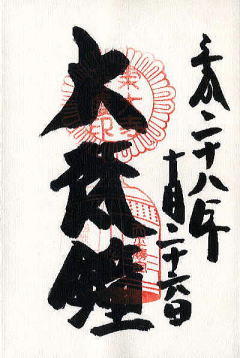 平成二十八年
十月二十六日
大梵鐘